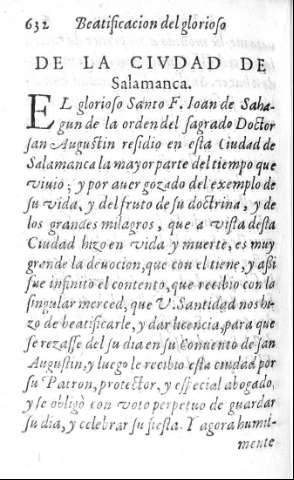 632 Beatificacion del glorioso
DE LA CIVDAD DE
Salamanca.
EL glorioso Santo F. Ioan de Saha-
gun de la orden del sagrado Doctor
san Augustin residio en esta Ciudad de
Salamanca la mayor parte del tiempo que
viuio; y por auer gozado del exemplo de
su vida, y del fruto de su doctrina, y de
los grandes milagros, que a vista desta
Ciudad hizo en vida y muerte, es muy
grende la deuocion, que con el tiene, y assi
fue infinito el contento, que recibio con la
singular merced, que V. Santidad nos hi-
zo de beatificarle, y dar licencia, para que
se rezasse del su dia en su conuento de san
Augustin, y luego le recibio esta ciudad por
su Patron, protector, y especial abogado,
y se obligò con voto perpetuo de guardar
su dia, y celebrar su fiesta. Y agora humil-
mente